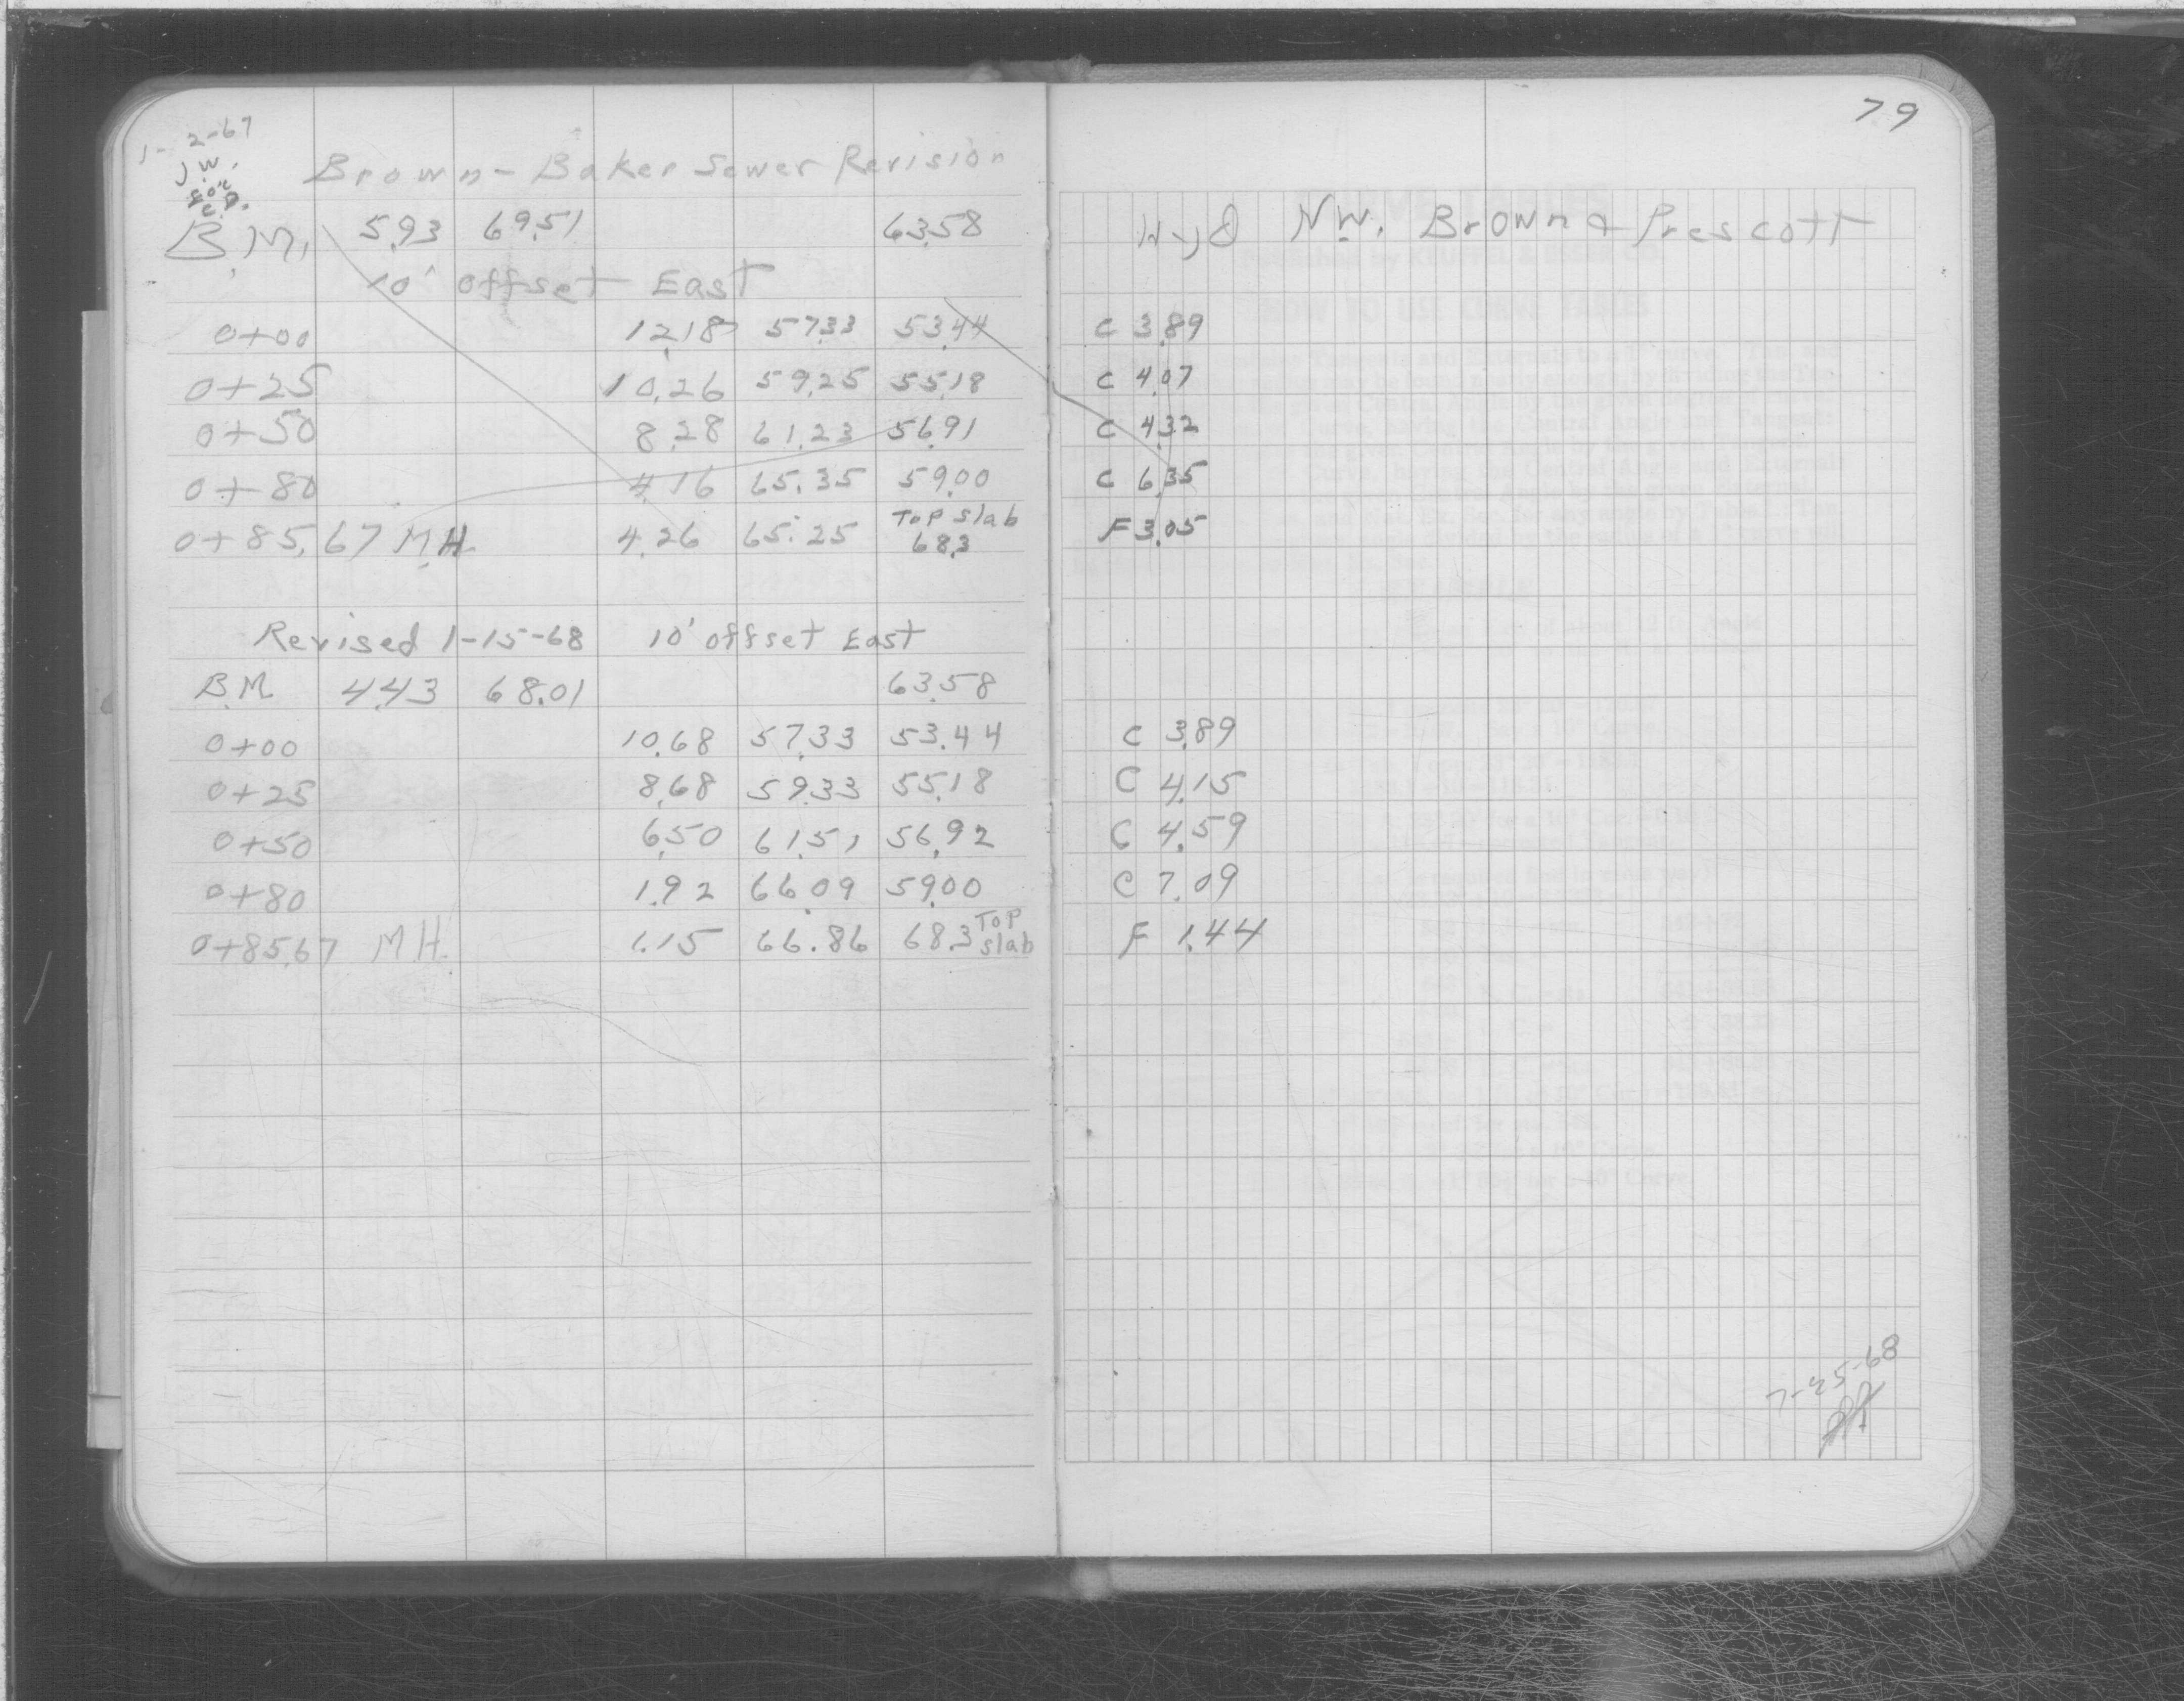 79
1-2-67
J.W.
Brown-Baker Sewer Revision
B.M. 5.93 69.51 63.58 Hyd N.W. Brown & Prescott
10' offset East
0+00 12.18 57.33 53.44 C 3.89
0+25 10.26 59.25 55.18 C 4.07
0+50 8.28 61.23 56.91 C 4.32
0+80 4.16 65.35 59.00 C 6.35
0+85.67 M.H. 4.26 65.25 Top slab 68.3 F 3.05
Revised 1-15-68 10' offset East
B.M 4.43 68.01 63.58
0+00 10.68 57.33 53.44 C 3.89
0+25 8.68 59.33 55.18 C 4.15
0+50 6.50 61.51 56.92 C 4.59
0+80 1.92 66.09 59.00 C 7.09
0+85.67 M.H. 1.15 66.86 68.3 Top slab F 1.44